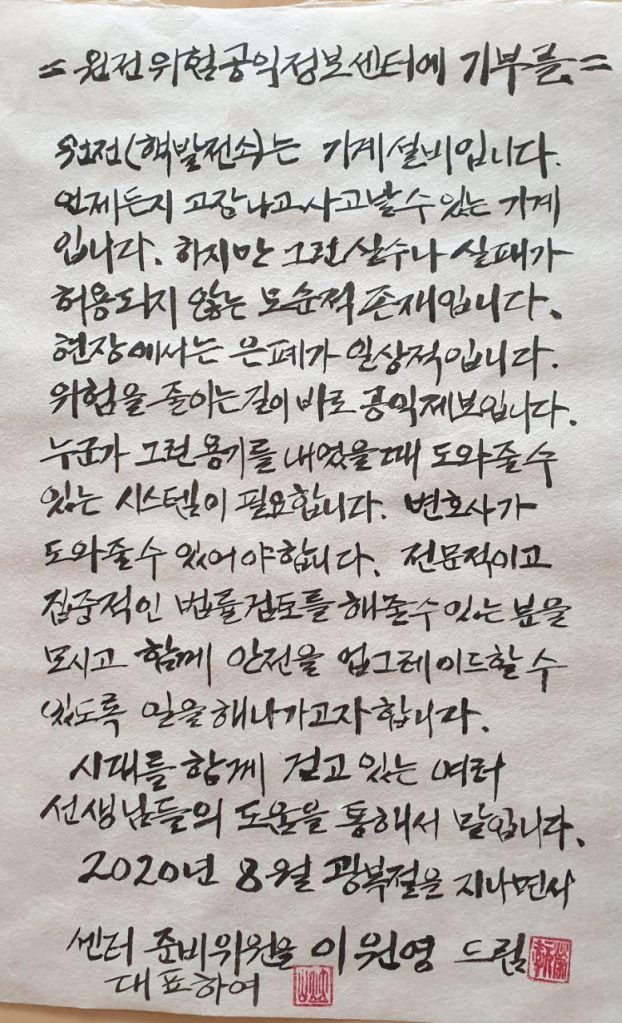 = 원전위험공익정보센터에 기부를 =
원전(핵발전소)는 기계설비입니다.
언제든지 고장나고 사고날 수 있는 기계
입니다. 하지만 그런 실수나 실패가
허용되지 않는 모순적 존재입니다.
현장에서는 은폐가 일상적입니다.
위험을 줄이는 길이 바로 공익제보입니다.
누군가 그런 용기를 내었을 때 도와줄 수
있는 시스템이 필요합니다. 변호사가
도와줄 수 있어야 합니다. 전문적이고
집중적인 법률검토를 해줄 수 있는 분을
모시고 함께 안전을 업그레이드할 수
있도록 일을 해나가고자 합니다.
시대를 함께 걷고 있는 여러
선생님들의 도움을 통해서 말입니다.
2020년 8월 광복절을 지나면서
센터 준비위원을 이원영 드림
대표하여